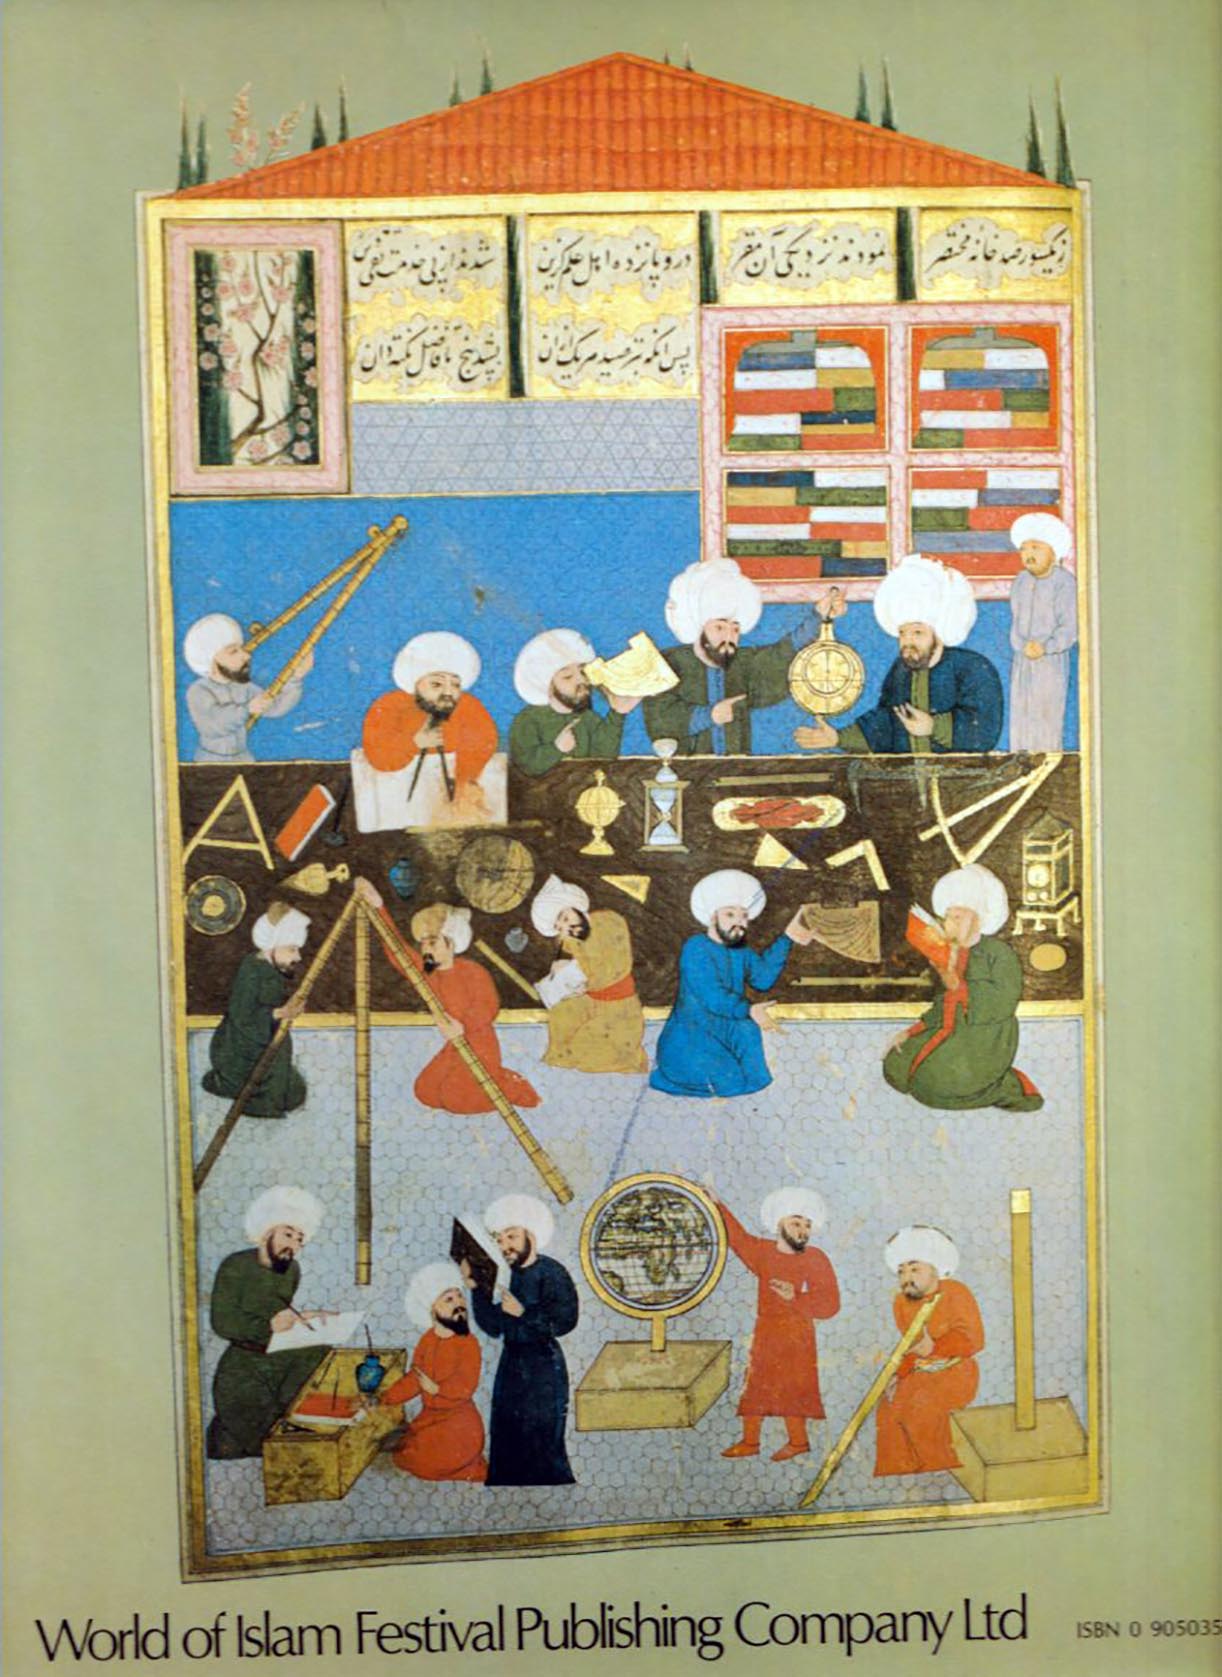 ز یکسو رصد خانه مختصر نمودند نزدیکی آن مقر درو پانزده اهل علم گزین شدند از پی خدمت
پس آنکه بترصید هر یک ازان فاضل نکته دان
World of Islam Festival Publishing Company Ltd ISBN 0 905035